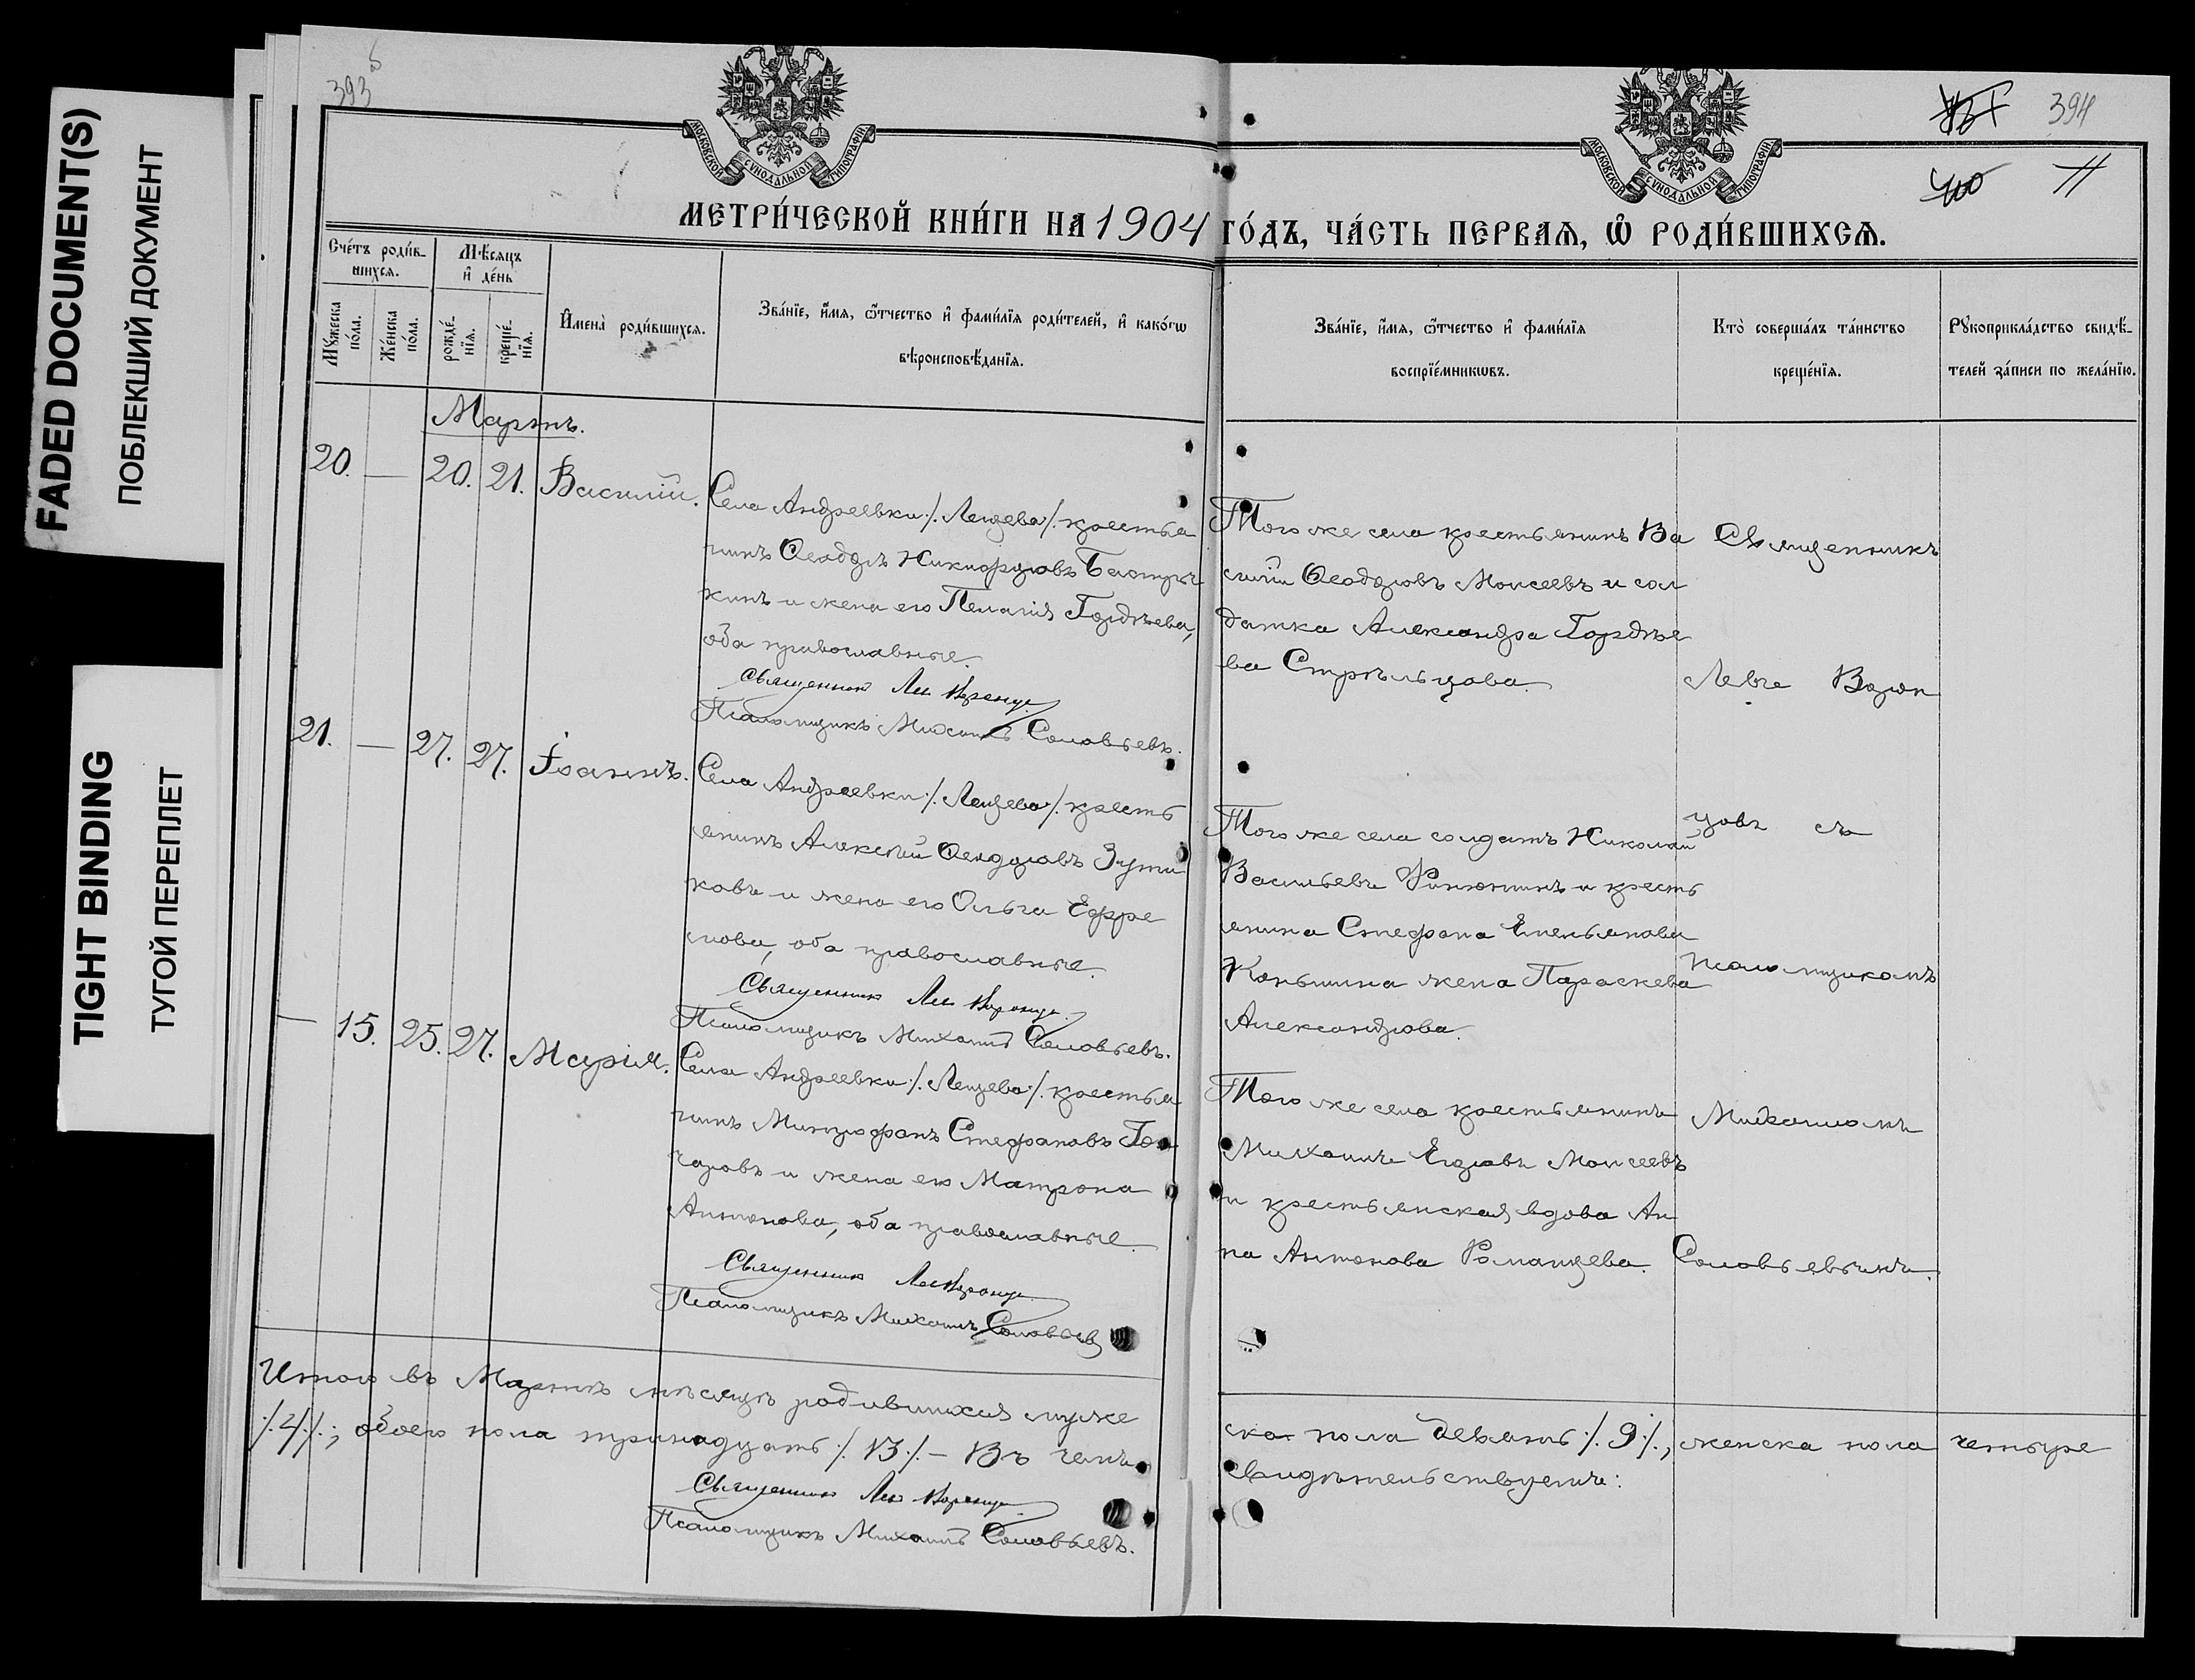 FADED DOCUMENT(S)
ПОБЛЕКШИЙ ДОКУМЕНТ
TIGHT BINDING
ТУГОЙ ПЕРЕПЛЕТ
393
394
11
МОСКОВСКОЙ СѴНОДАЛЬНОЙ ТИПОГРАФІИ
МОСКОВСКОЙ СѴНОДАЛЬНОЙ ТИПОГРАФІИ
МЕТРИ́ЧЕСКОЙ КНИ́ГИ НА 1904 ГО́ДЪ, ЧА́СТЬ ПЕРВАѦ, Ѡ҆ РОДИ́ВШИХСѦ.
Сче́тъ роди́в-
шихся.
Мꙋ́жеска
по́ла.
Же́нска
по́ла.
Мѣ́сяцъ
и҆ де́нь
рожде́-
нїя.
креще́-
нїя.
И҆мена̀ роди́вшихся.
Зва́нїе, и҆́мя, ѻ҆́тчество и҆ фами́лїя роди́телей, и҆ како́гѡ
вѣроисповѣ́данїя.
Зва́нїе, и҆́мя, ѻ҆́тчество и҆ фами́лїя
воспрїе́мникѡвъ.
Кто̀ соверша́лъ та́инство
креще́нїя.
Рꙋкоприкла́дство свидѣ́-
телей за́писи по жела́нїю.
Мартъ.
20. — 20. 21. Василій.
Села Андреевки /. Лещева /. крестья
нинъ Ѳеодоръ Никифоровъ
кинъ и жена его Пелагія Гордѣева,
оба православные.
Священникъ Лев Воронцо
Псаломщикъ Михаилъ Соловьевъ.
Того же села крестьянинъ Ва
силій Ѳеодоровъ Моисеевъ и сол
датка Александра Гордѣе
ва Стрѣльцова.
21. — 27. 27. Іоаннъ.
Села Андреевки /. Лещева /. кресть
янинъ Алексѣй Ѳеодоровъ
ковъ и жена его Ольга Ефре
мова, оба православные.
Священникъ Лев Воронцо
Псаломщикъ Михаилъ Соловьевъ.
Того же села солдатъ Николай
Васильевъ и кресть
янина Стефана Емельянова
Коньшина жена Параскева
Александрова.
— 15. 25. 27. Марія.
Села Андреевки /. Лещева /. крестья
нинъ Митрофанъ Стефановъ Гон
чаровъ и жена его Матрона
Антонова, оба православные.
Священникъ Лев Воронцо
Псаломщикъ Михаилъ Соловьевъ
Того же села крестьянинъ
Михаилъ Егоровъ Моисеевъ
и крестьянская вдова Ан
на Антонова Романцева.
Священникъ
Левъ Ворон
цовъ съ
псаломщикомъ
Михаиломъ
Соловьевымъ.
Итого въ Мартѣ мѣсяцѣ родившихся муже
ска пола девять /. 9 /., женска пола четыре
/. 4 /.; обоего пола тринадцать /. 13 /. — Въ чемъ
свидѣтельствуемъ:
Священникъ Лев Воронцо
Псаломщикъ Михаилъ Соловьевъ.